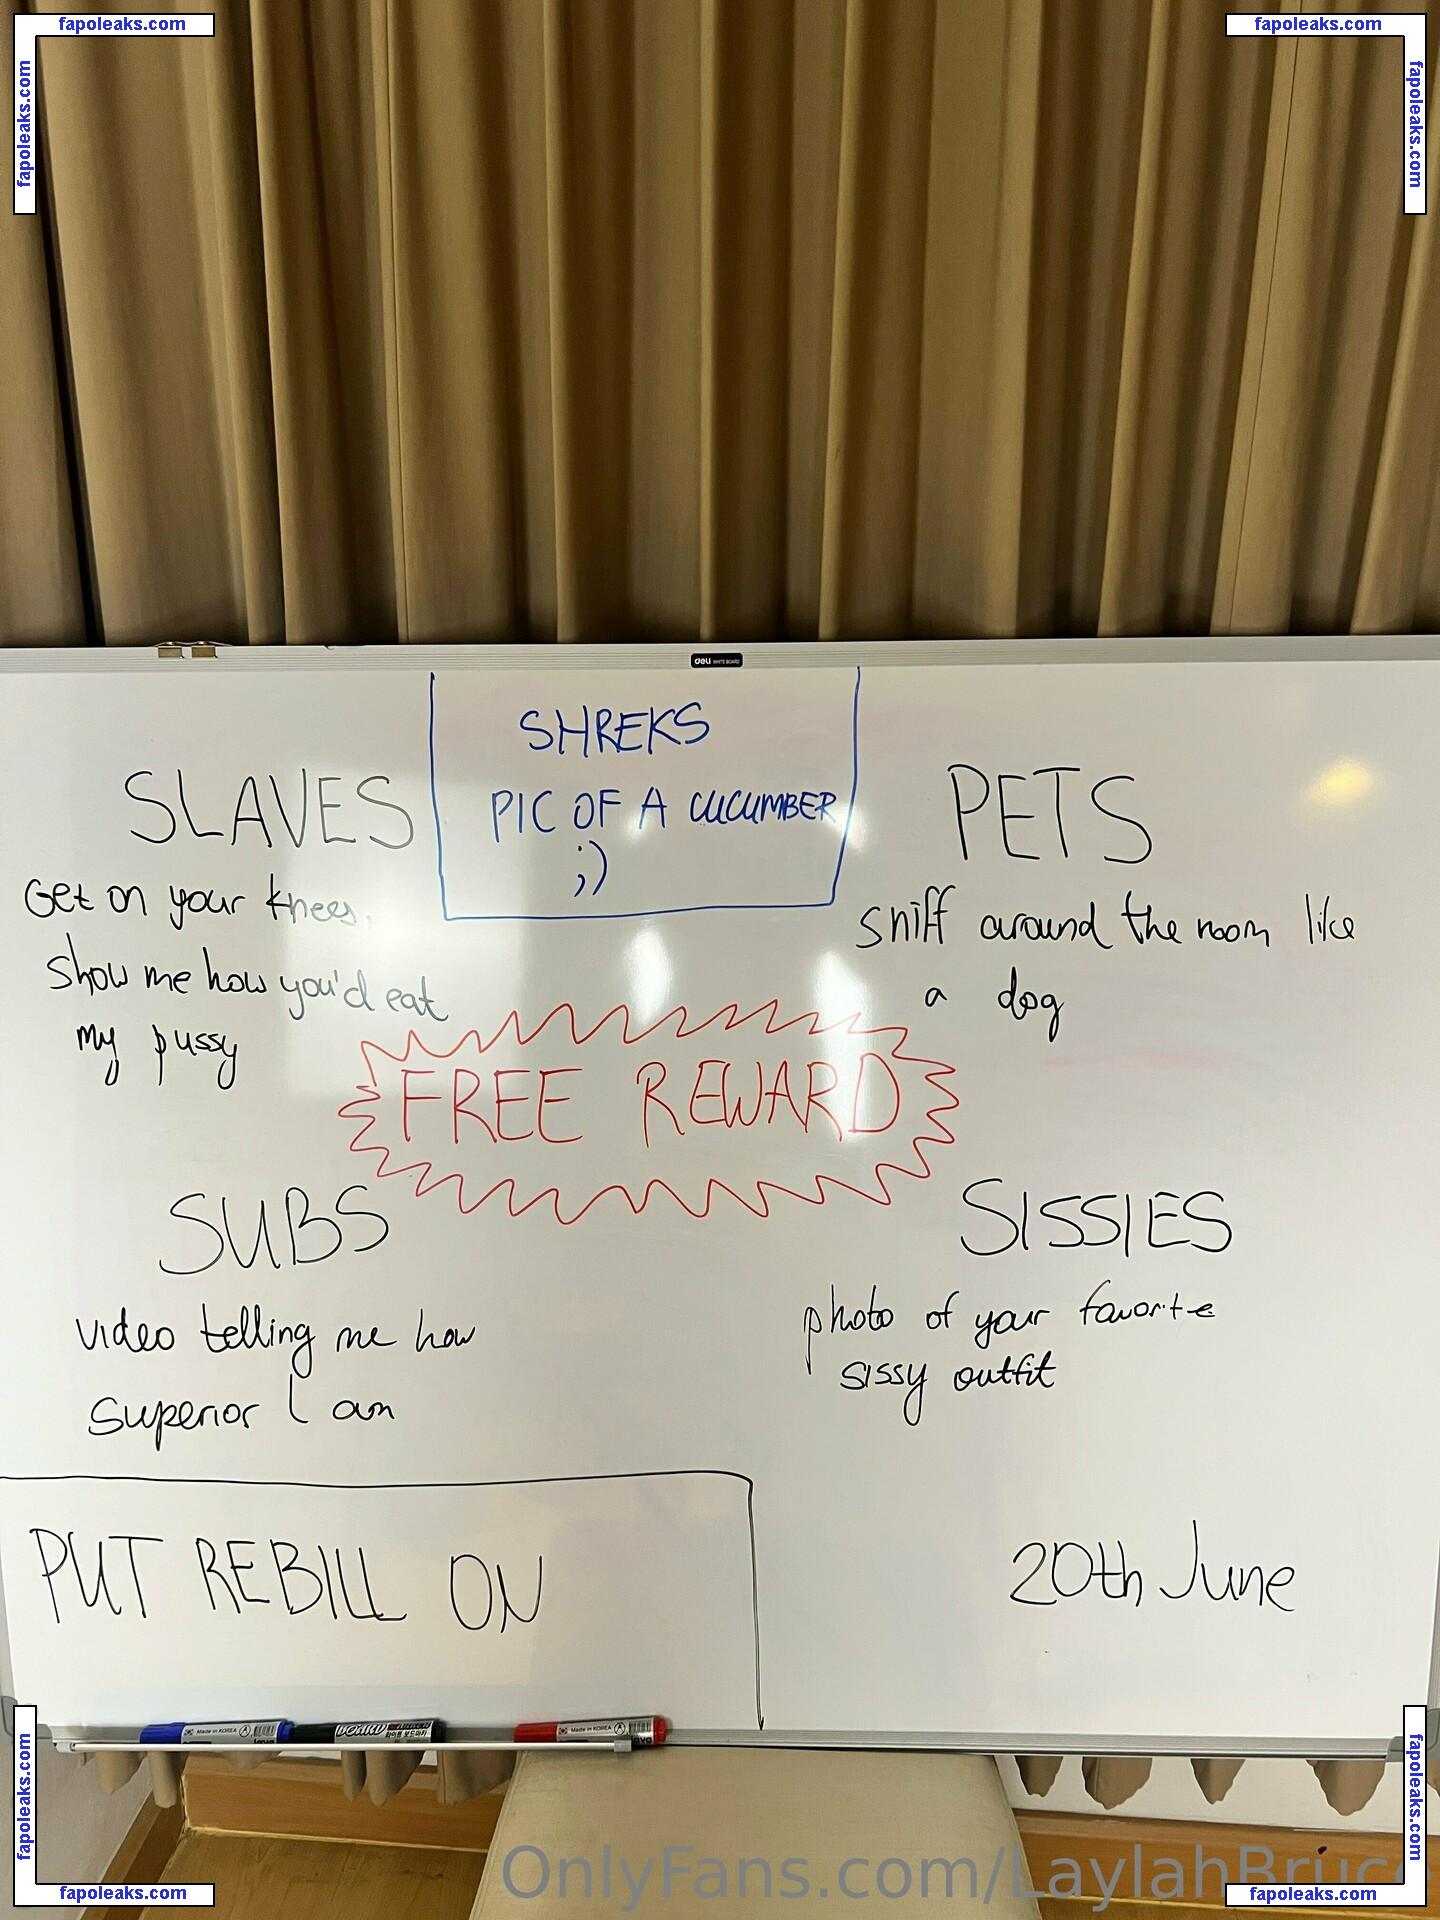 fapoleaks.com
fapoleaks.com
fapoleaks.com
fapoleaks.com
deli WHITE BOARD
SHREKS
PIC OF A CUCUMBER
;)
SLAVES
Get on your knees,
show me how you'd eat
my pussy
PETS
sniff around the room like
a dog
FREE REWARD
SUBS
video telling me how
superior I am
SISSIES
photo of your favorite
sissy outfit
PUT REBILL ON
20th June
Made in KOREA
BOARD
Made in KOREA
OnlyFans.com/LaylahBruce
fapoleaks.com
fapoleaks.com
fapoleaks.com
fapoleaks.com